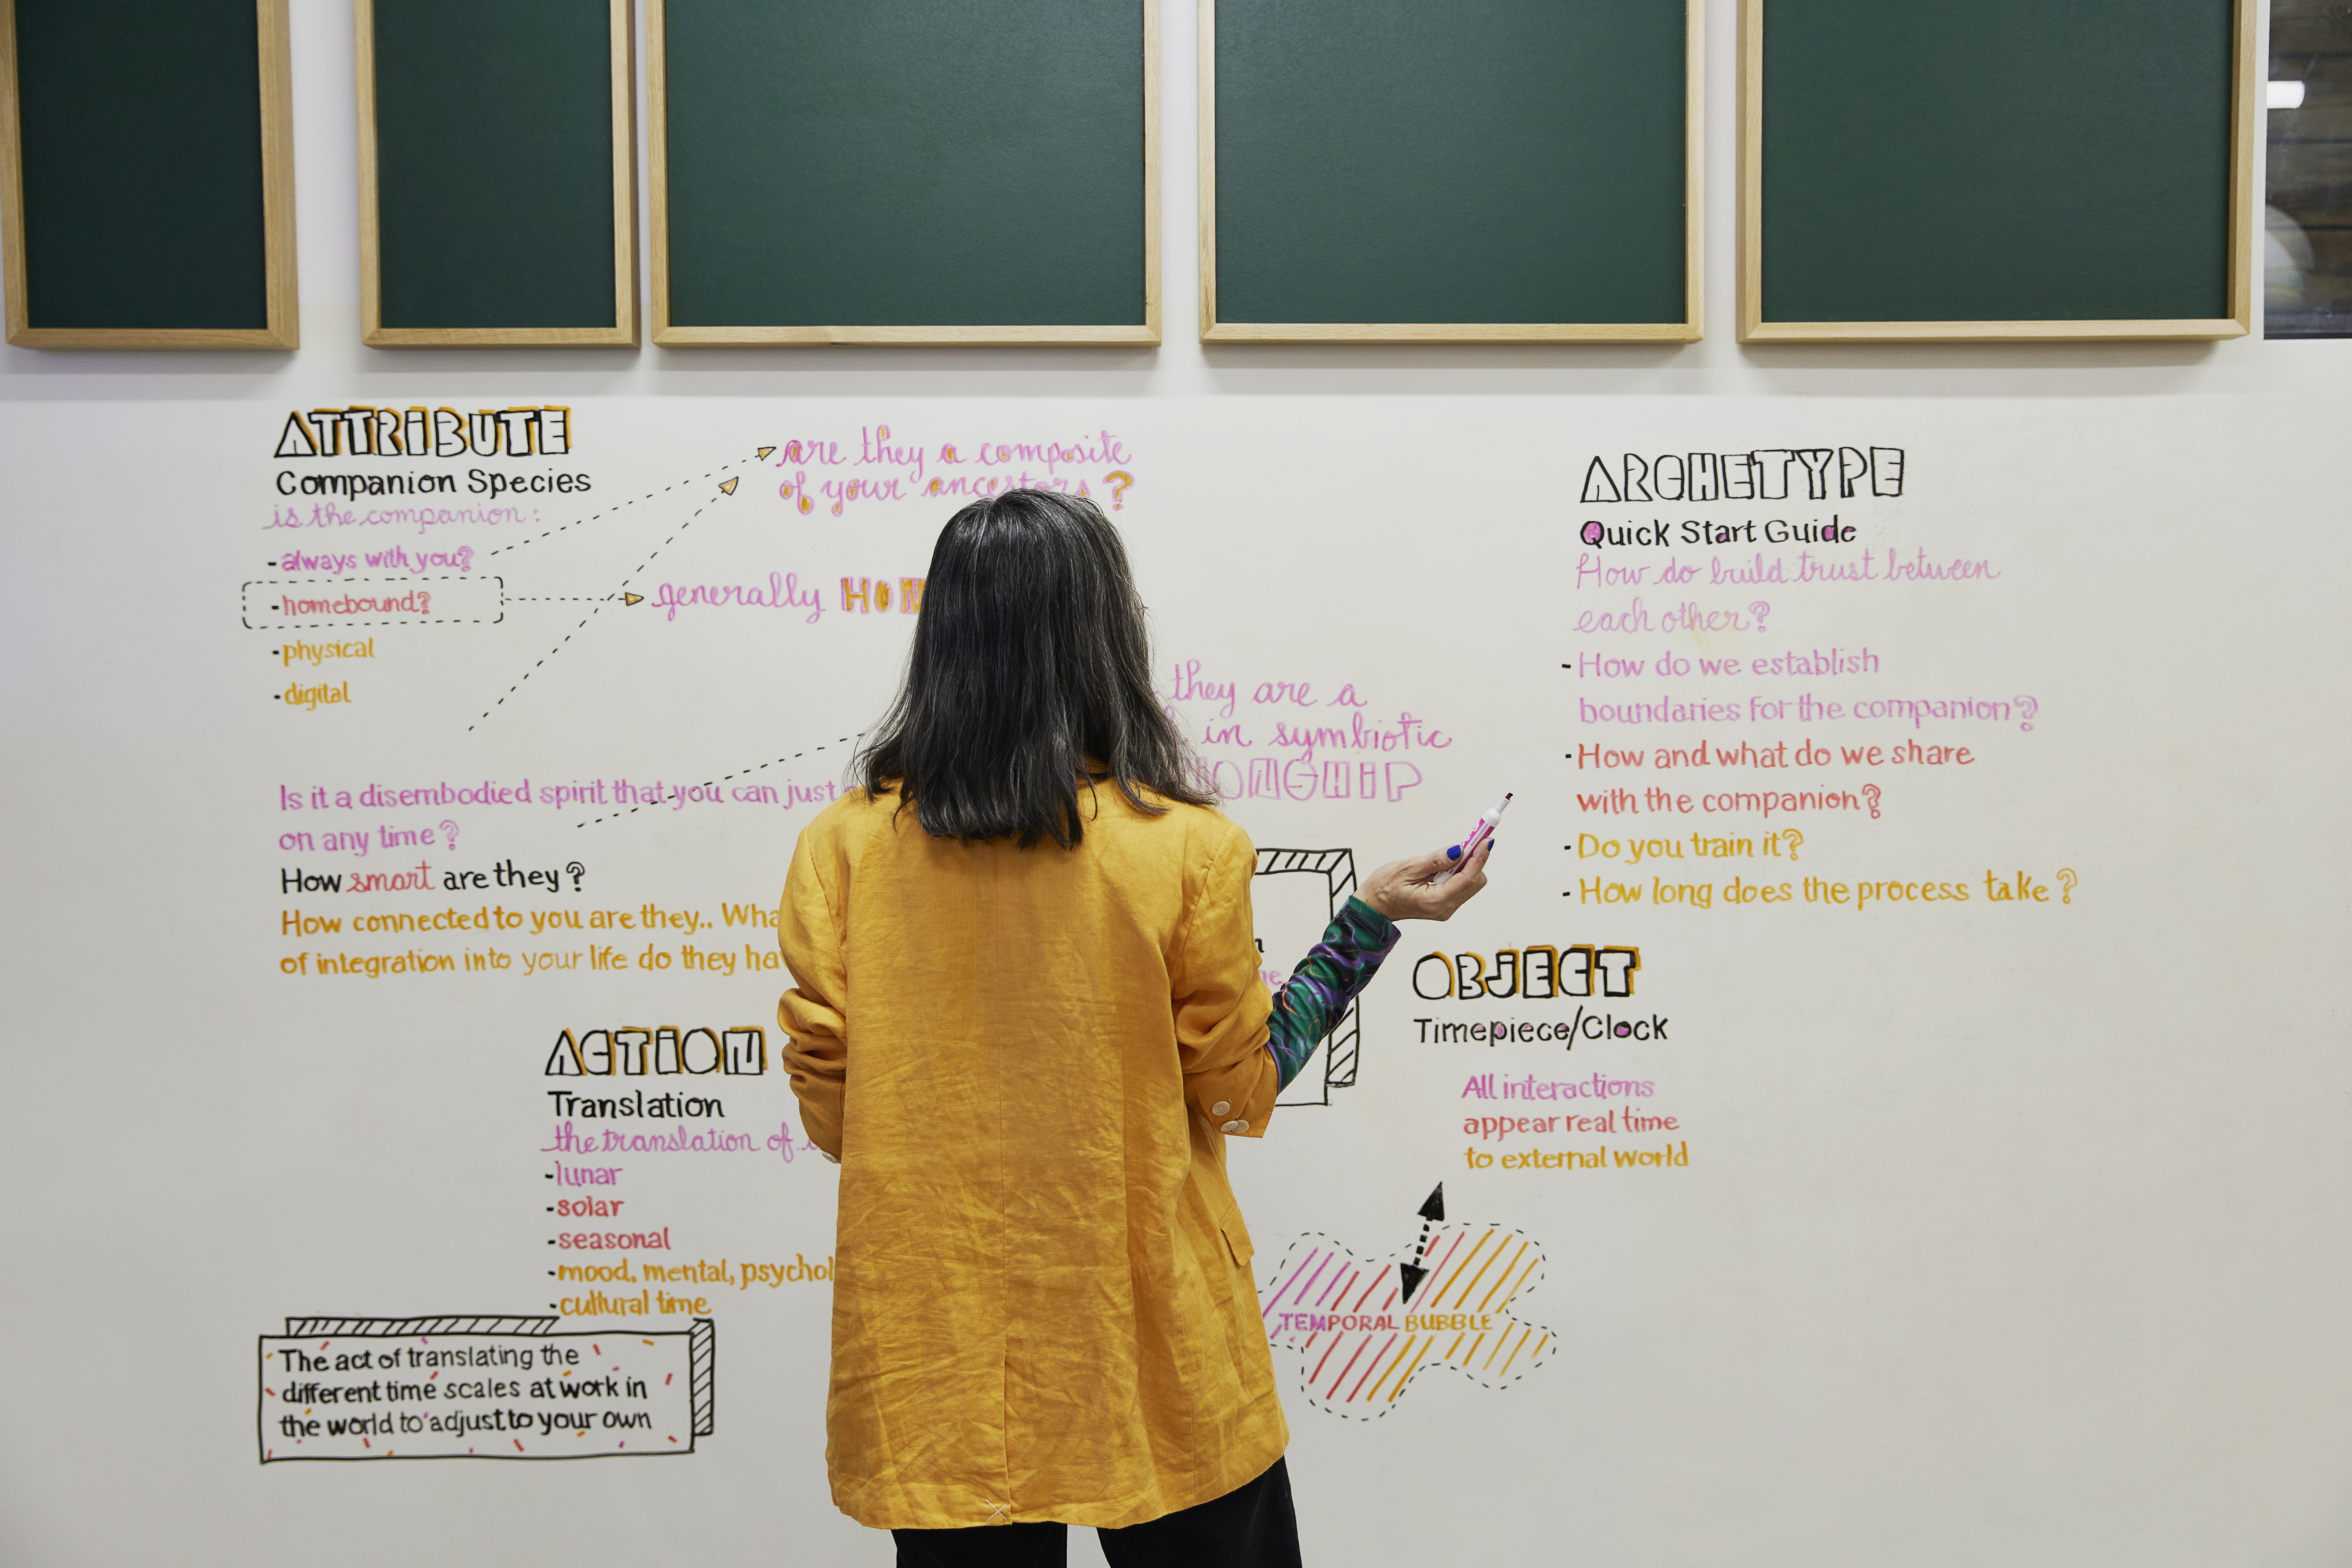 ATTRIBUTE
Companion Species
is the companion:
- always with you?
- homebound?
- physical
- digital
are they a composite
of your ancestors?
generally
they are a
in symbiotic
Is it a disembodied spirit that you can just
on any time?
How smart are they?
How connected to you are they..
of integration into your life do they
ACTION
Translation
the translation of
- lunar
- solar
- seasonal
- mood, mental,
- cultural time
The act of translating the
different time scales at work in
the world to adjust to your own
ARCHETYPE
Quick Start Guide
How do build trust between
each other?
- How do we establish
boundaries for the companion?
- How and what do we share
with the companion?
- Do you train it?
- How long does the process take?
OBJECT
Timepiece/Clock
All interactions
appear real time
to external world
TEMPORAL BUBBLE